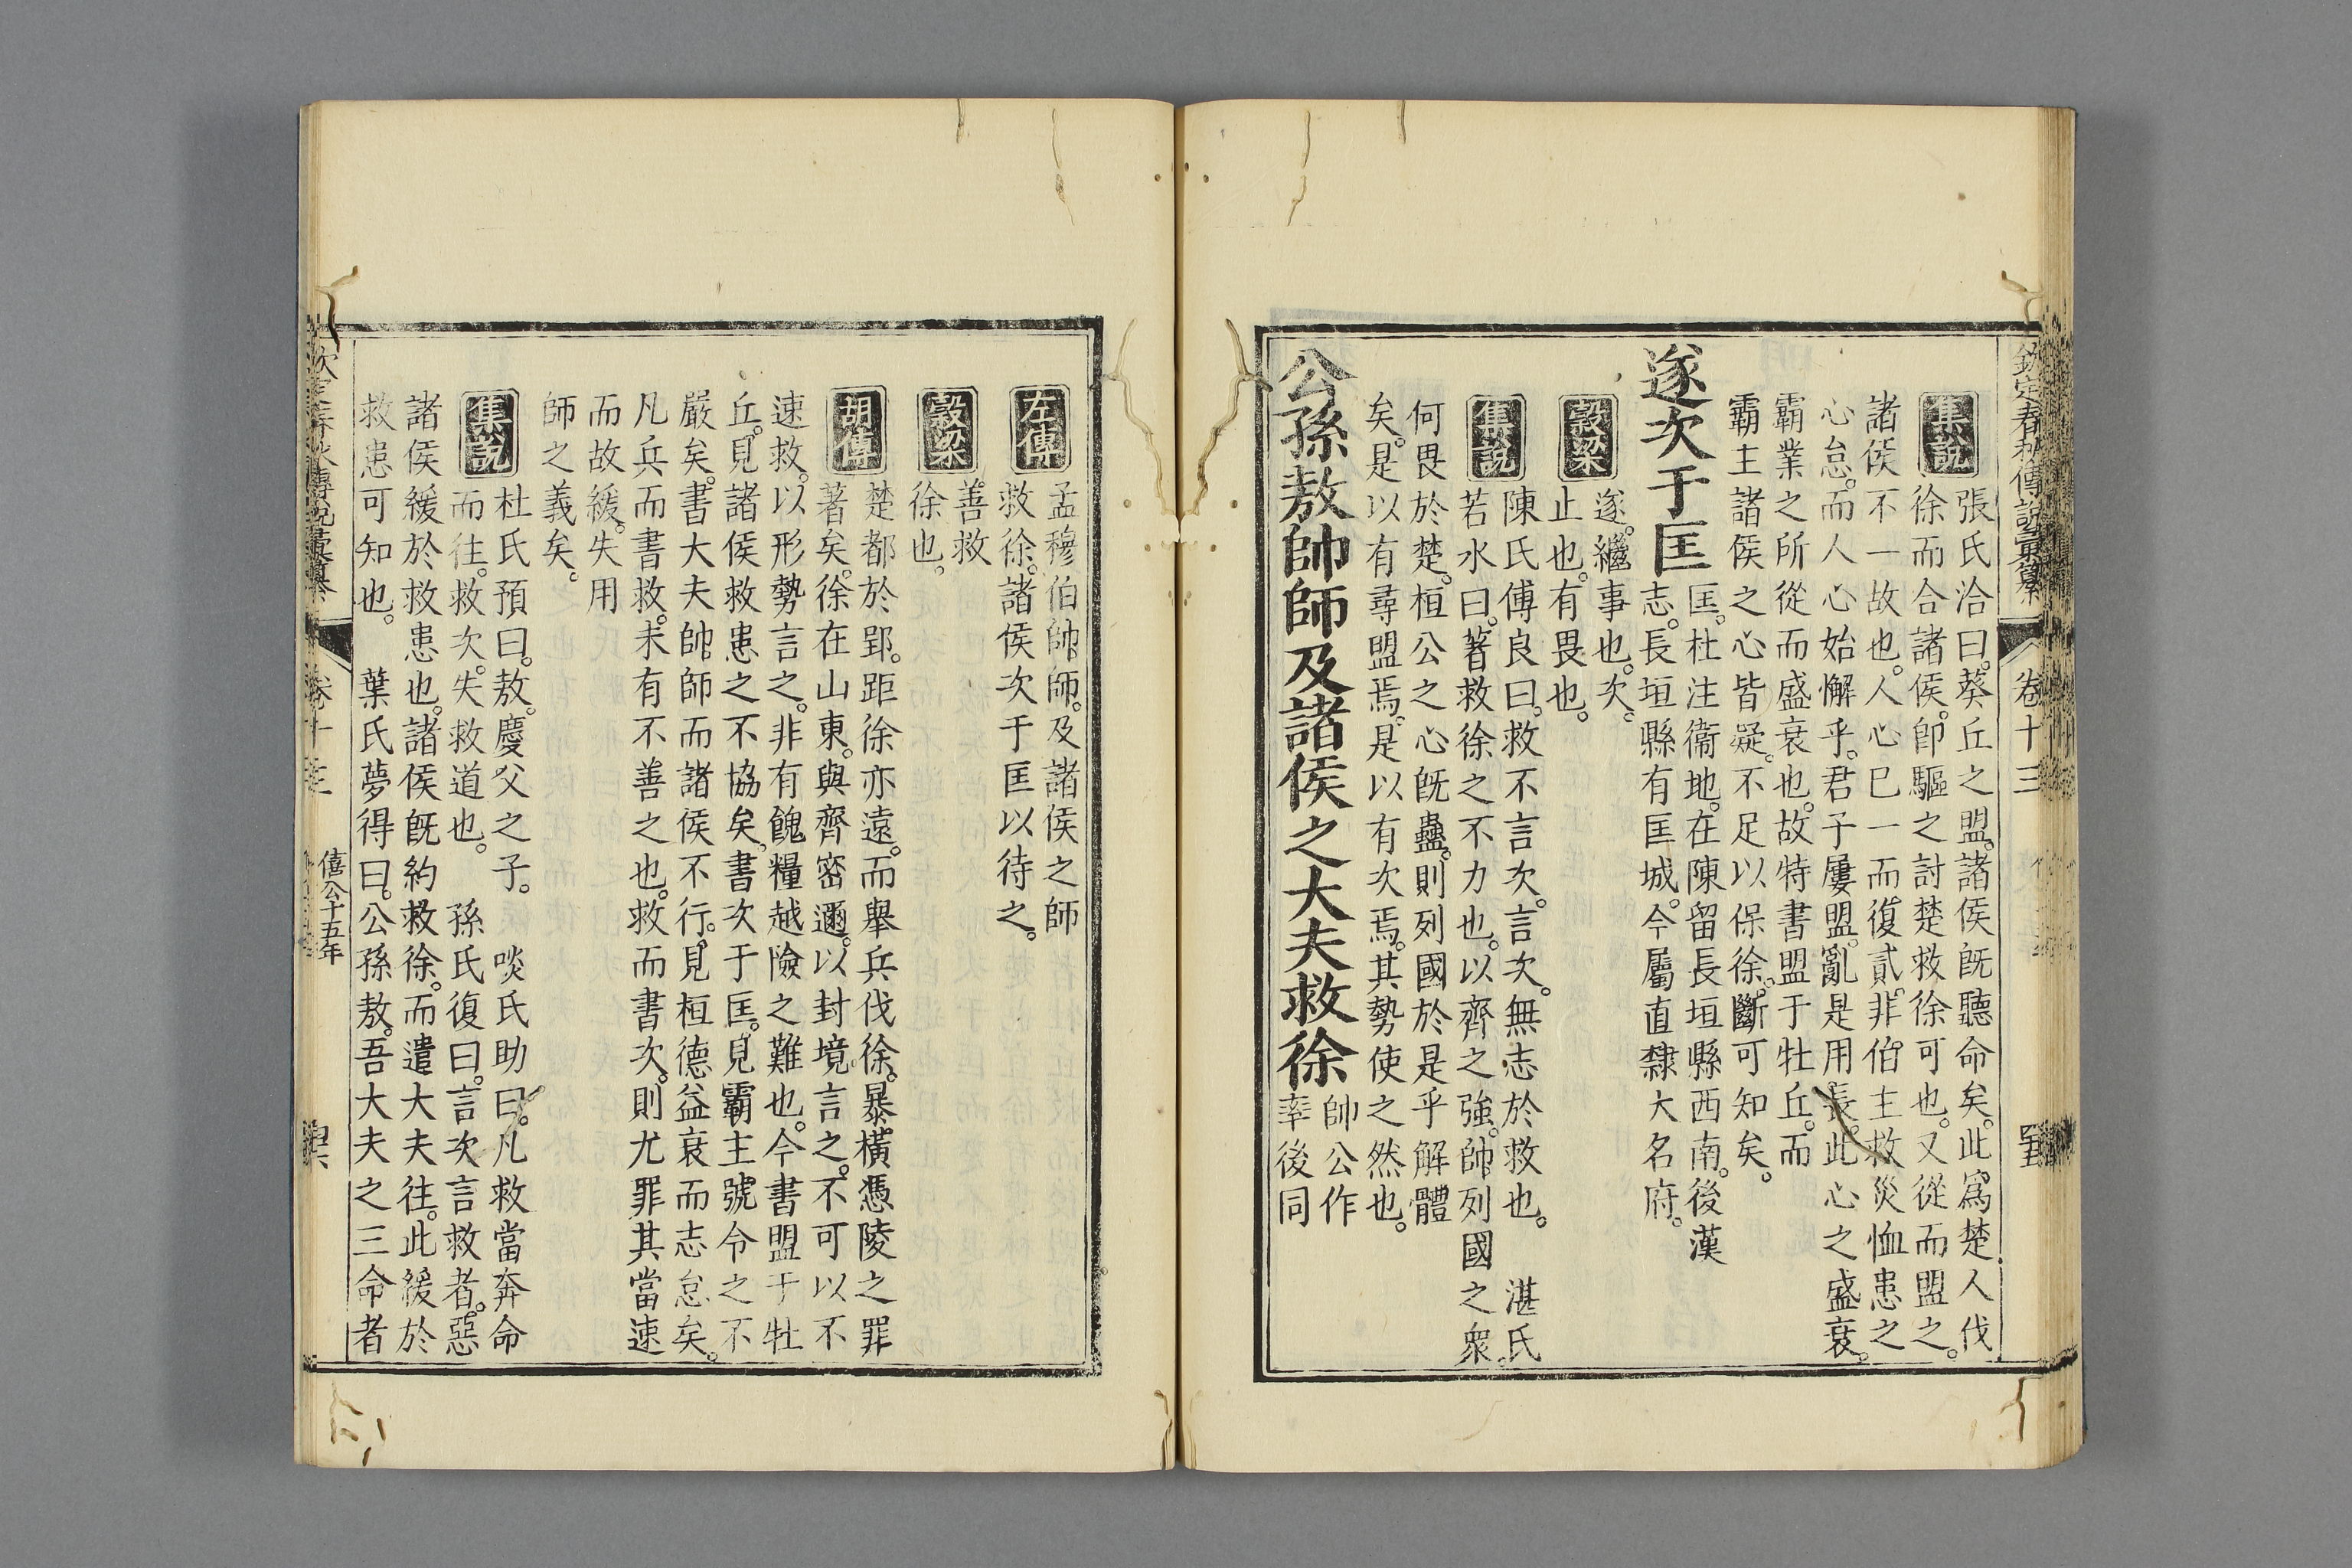 欽定春秋傳說彙纂 卷十三
集說 張氏洽曰。葵丘之盟。諸侯旣聽命矣。此爲楚人伐
徐而合諸侯。卽驅之討楚救徐可也。又從而盟之。
諸侯不一故也。人心已一而復貳。非伯主救災恤患之
心怠。而人心始懈乎。君子屢盟。亂是用長。此心之盛衰。
霸業之所從而盛衰也。故特書盟于牡丘。而
霸主諸侯之心皆疑。不足以保徐。斷可知矣。
遂次于匡
匡。杜注衞地。在陳留長垣縣西南。後漢
志。長垣縣有匡城。今屬直隸大名府。
穀梁 遂。繼事也。次。
止也。有畏也。
集說 陳氏傅良曰。救不言次。言次。無志於救也。 湛氏
若水曰。著救徐之不力也。以齊之強。帥列國之衆。
何畏於楚。桓公之心旣蠱。則列國於是乎解體
矣。是以有尋盟焉。是以有次焉。其勢使之然也。
公孫敖帥師及諸侯之大夫救徐
帥公作
率後同
左傳 孟穆伯帥師。及諸侯之師
救徐。諸侯次于匡以待之。
穀梁 善救
徐也。
胡傳 楚都於郢。距徐亦遠。而舉兵伐徐。暴橫憑陵之罪
著矣。徐在山東。與齊密邇。以封境言之。不可以不
速救。以形勢言之。非有餽糧越險之難也。今書盟于牡
丘。見諸侯救患之不協矣。書次于匡。見霸主號令之不
嚴矣。書大夫帥師而諸侯不行。見桓德益衰而志怠矣。
凡兵而書救。未有不善之也。救而書次。則尤罪其當速
而故緩。失用
師之義矣。
集說 杜氏預曰。敖。慶父之子。 啖氏助曰。凡救當奔命
而往。救次。失救道也。 孫氏復曰。言次言救者。惡
諸侯緩於救患也。諸侯旣約救徐。而遣大夫往。此緩於
救患可知也。 葉氏夢得曰。公孫敖。吾大夫之三命者
欽定春秋傳說彙纂 卷十三 僖公十五年